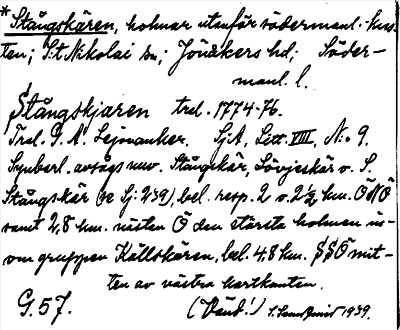 * Stångskären, holmar utanför södermanl. kus-
ten; S:t Nikolai sn; Jönåkers hd; Söder-
manl. l.
Stångskjaren trol. 1774-76.
Trol. P. A. Lejonancker. SjA, Litt. VIII, No 9.
Synberl. avsågs nuv. Stångskär, Sävjeskär o. S.
Stångskär (se Sj: 239), bel. resp. 2 o. 2½ km. ÖNÖ
samt 2,8 km. nästan Ö den största holmen in-
om gruppen Källskären, bel. 4.8 km. SSÖ mit-
ten av västra kartkanten.
G. 57. (Vänd!) 1939.